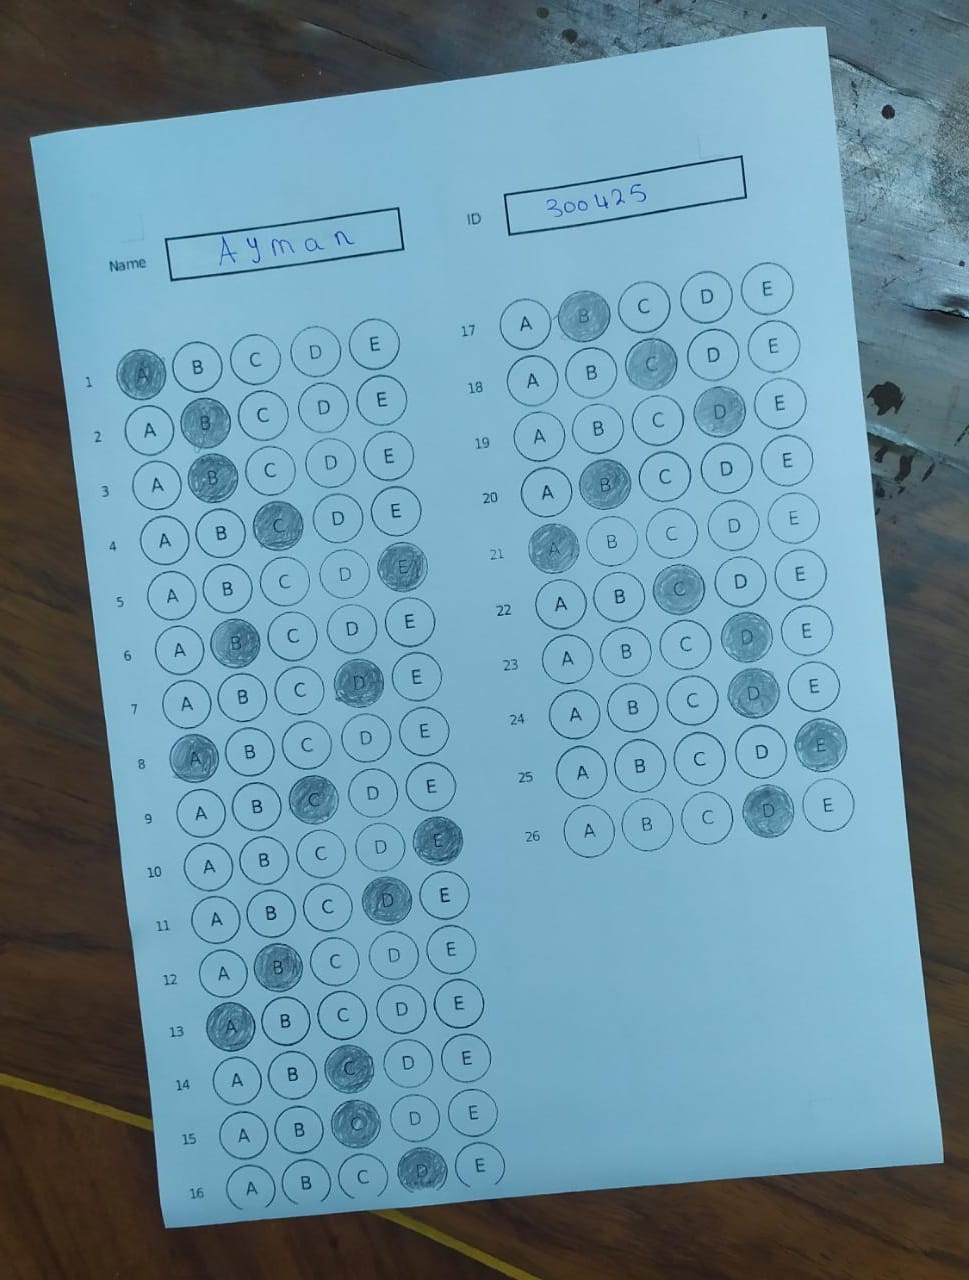 Name Ayman
ID 300425
1 A B C D E
2 A B C D E
3 A B C D E
4 A B C D E
5 A B C D E
6 A B C D E
7 A B C D E
8 A B C D E
9 A B C D E
10 A B C D E
11 A B C D E
12 A B C D E
13 A B C D E
14 A B C D E
15 A B C D E
16 A B C D E
17 A B C D E
18 A B C D E
19 A B C D E
20 A B C D E
21 A B C D E
22 A B C D E
23 A B C D E
24 A B C D E
25 A B C D E
26 A B C D E